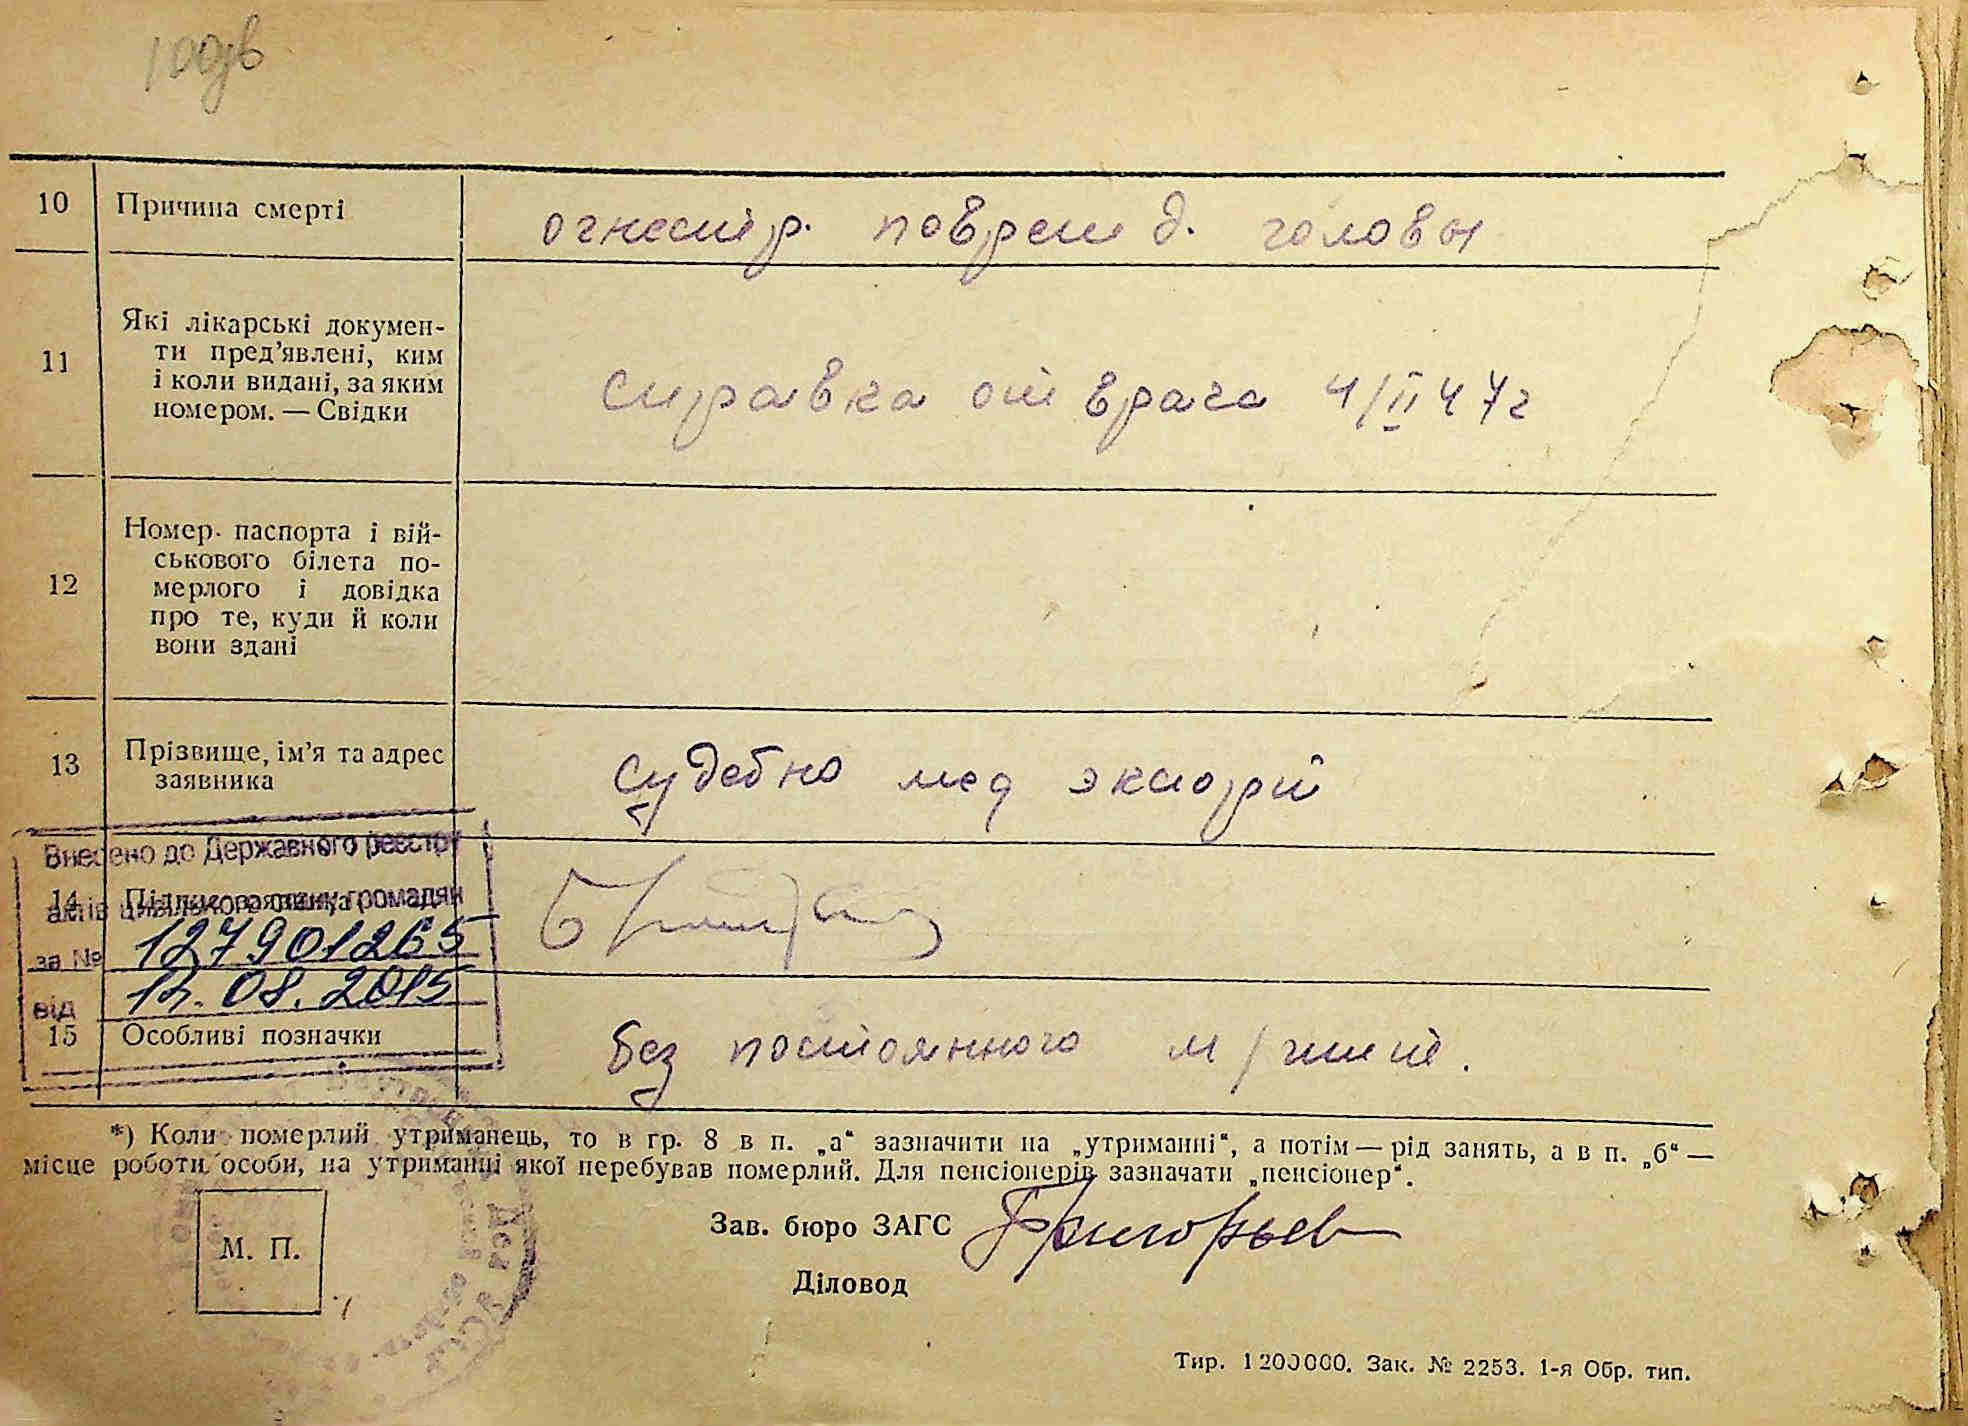 10 Причина смерті
огнестр. поврежд. головы
11 Які лікарські докумен-
ти пред'явлені, ким
і коли видані, за яким
номером. — Свідки
справка от врача 4/II 47 г
12 Номер паспорта і вій-
ськового білета по-
мерлого і довідка
про те, куди й коли
вони здані
13 Прізвище, ім'я та адрес
заявника
судебно мед экспорт
Внесено до Державного реєстру
14 Підпис заявника
актів цивільного стану громадян
за № 127901265
від 12.08.2015
15 Особливі позначки
без постоянного м/жит.
*) Коли померлий утриманець, то в гр. 8 в п. „а“ зазначити на „утриманні“, а потім — рід занять, а в п. „б“ —
місце роботи особи, на утриманні якої перебував померлий. Для пенсіонерів зазначати „пенсіонер“.
М. П.
Зав. бюро ЗАГС Григорьев
Діловод
Тир. 1200000. Зак. № 2253. 1-я Обр. тип.